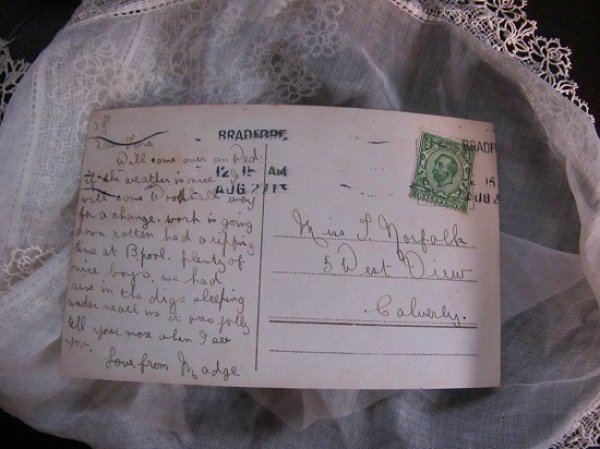 BRADFORD
12 15 AM
AUG 27 13
Will come over on Wed:
if the weather is nice I
will come Woodhall way
for a change. work is going
down rotten had a ripping
time at B.pool. plenty of
nice boys. we had
in the digs sleeping
under neath us it was jolly
tell you more when I see
you.
Love from Madge
BRADFORD
Miss J. Norfolk
5 West View
Calverly.